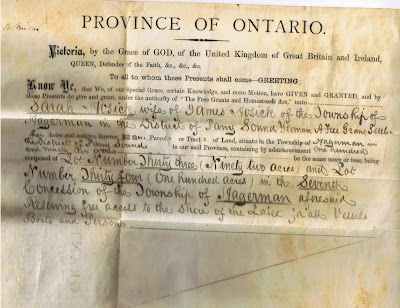 PROVINCE OF ONTARIO.
Victoria, by the Grace of GOD, of the United Kingdom of Great Britain and Ireland,
QUEEN, Defender of the Faith, &c., &c., &c.
To all to whom these Presents shall come—GREETING:
Know Ye, that We, of our Special Grace, certain Knowledge, and mere Motion, have GIVEN and GRANTED, and by
these Presents do give and grant, under the authority of "The Free Grants and Homesteads Act," unto
Sarah wife of James of the Township of
Hagerman in the District of Parry Sound Yeoman A Free Grant Settler
heirs and assigns, forever, All Parcel or Tract of Land, situate in the Township of Hagerman in
the District of Parry Sound in our said Province, containing by admeasurement One hundred
and Ninety two acres be the same more or less; being
composed of Lot Number Thirty three (Ninety two acres) and Lot
Number Thirty four (One hundred acres) in the Seventh
Concession of the Township of Hagerman aforesaid
Reserving free access to the shore of the Lake for all Vessels
Boats and Persons